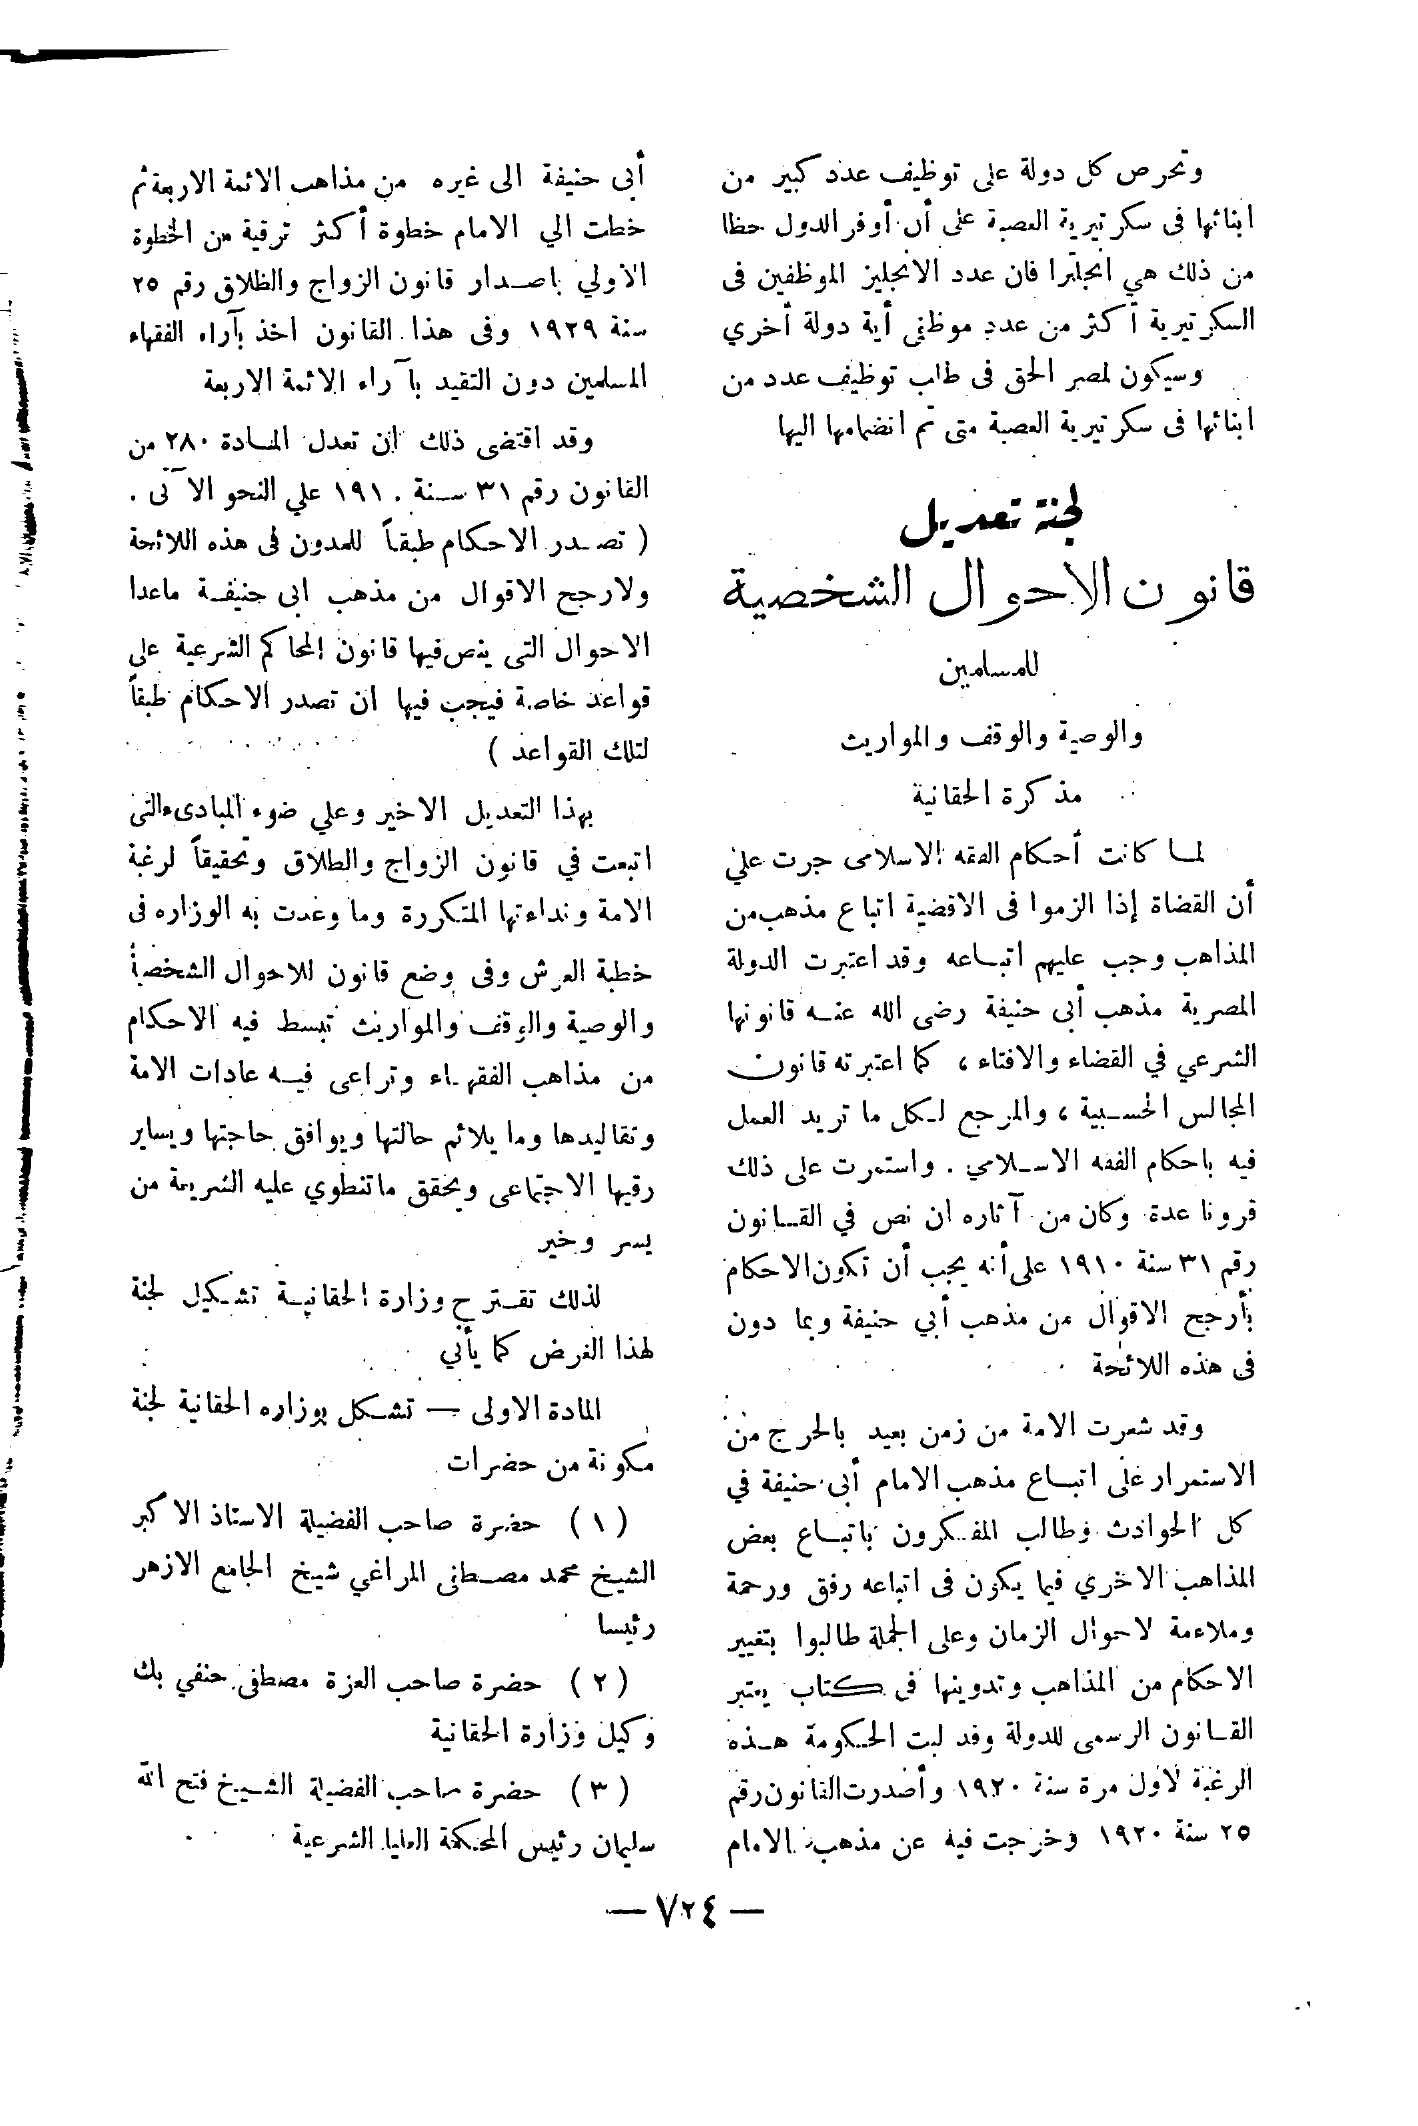 وتحرص كل دولة على توظيف عدد كبير من
ابنائها فى سكرتيرية العصبة على أن أوفر الدول حظا
من ذلك هي انجلترا فان عدد الانجليز الموظفين فى
السكرتيرية أكثر من عدد موظفى أية دولة أخري
وسيكون لمصر الحق فى طلب توظيف عدد من
ابنائها فى سكرتيرية العصبة متى تم انضمامها اليها
لجنة تعديل
قانون الاحوال الشخصية
للمسلمين
والوصية والوقف والمواريث
مذكرة الحقانية
لما كانت أحكام الفقه الاسلامى جرت علي
أن القضاة إذا الزموا فى الاقضية اتباع مذهب من
المذاهب وجب عليهم اتباعه وقد اعتبرت الدولة
المصرية مذهب أبى حنيفة رضى الله عنه قانونها
الشرعي في القضاء والافتاء ، كما اعتبرته قانون
المجالس الحسبية ، والمرجع لكل ما تريد العمل
فيه باحكام الفقه الاسلامي . واستمرت على ذلك
قرونا عدة وكان من آثاره ان نص في القانون
رقم ٣١ سنة ١٩١٠ على أنه يجب أن تكون الاحكام
بأرجح الاقوال من مذهب أبي حنيفة وبما دون
فى هذه اللائحة
وقد شعرت الامة من زمن بعيد بالحرج من
الاستمرار على اتباع مذهب الامام أبى حنيفة في
كل الحوادث وطالب المفكرون باتباع بعض
المذاهب الاخري فيما يكون فى اتباعه رفق ورحمة
وملاءمة لاحوال الزمان وعلى الجملة طالبوا بتغيير
الاحكام من المذاهب وتدوينها فى كتاب يعتبر
القانون الرسمى للدولة وقد لبت الحكومة هذه
الرغبة لأول مرة سنة ١٩٢٠ وأصدرت القانون رقم
٢٥ سنة ١٩٢٠ وخرجت فيه عن مذهب الامام
أبى حنيفة الى غيره من مذاهب الائمة الاربعة ثم
خطت الي الامام خطوة أكثر ترقية من الخطوة
الاولي باصدار قانون الزواج والطلاق رقم ٢٥
سنة ١٩٢٩ وفى هذا القانون اخذ بآراء الفقهاء
المسلمين دون التقيد بآراء الائمة الاربعة
وقد اقتضى ذلك ان تعدل المادة ٢٨٠ من
القانون رقم ٣١ سنة ١٩١٠ علي النحو الآتى .
( تصدر الاحكام طبقاً للمدون فى هذه اللائحة
ولارجح الاقوال من مذهب ابى حنيفة ماعدا
الاحوال التى ينص فيها قانون المحاكم الشرعية على
قواعد خاصة فيجب فيها ان تصدر الاحكام طبقاً
لتلك القواعد )
بهذا التعديل الاخير وعلي ضوء المبادىء التى
اتبعت في قانون الزواج والطلاق وتحقيقاً لرغبة
الامة ونداءتها المتكررة وما وعدت به الوزاره فى
خطبة العرش وفى وضع قانون للاحوال الشخصية
والوصية والوقف والمواريث تبسط فيه الاحكام
من مذاهب الفقهاء وتراعى فيه عادات الامة
وتقاليدها وما يلائم حالتها ويوافق حاجتها ويساير
رقيها الاجتماعى ويحقق ماتنطوي عليه الشريعة من
يسر وخير
لذلك تقترح وزارة الحقانية تشكيل لجنة
لهذا الغرض كما يأتي
المادة الاولى — تشكل بوزاره الحقانية لجنة
مكونة من حضرات
( ١ ) حضرة صاحب الفضيلة الاستاذ الاكبر
الشيخ محمد مصطفى المراغي شيخ الجامع الازهر
رئيسا
( ٢ ) حضرة صاحب العزة مصطفى حنفي بك
وكيل وزارة الحقانية
( ٣ ) حضرة صاحب الفضيلة الشيخ فتح الله
سليمان رئيس المحكمة العليا الشرعية
— ٧٢٤ —